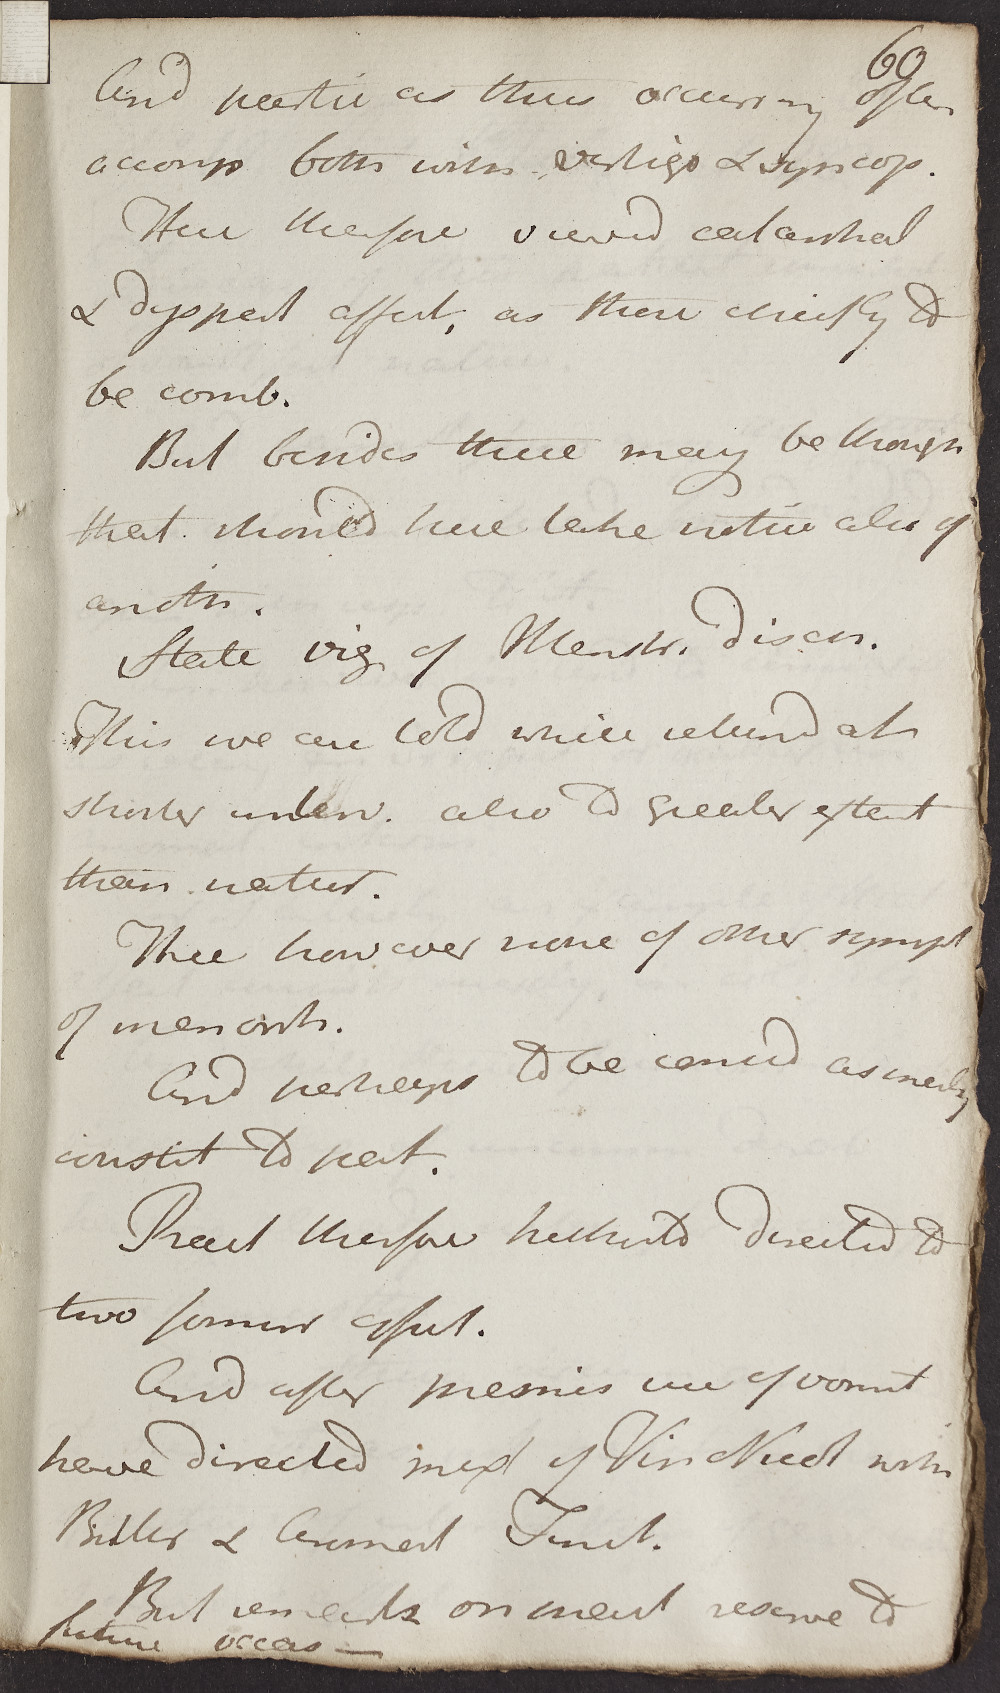 60
And partic as thus occurring often
accomp both with vertigo & syncop.
Here therefore viewd catarrhal
& dyspept affect, as there chiefly to
be comb.
But besides these may be though
that should here take notice also of
anoth.
State viz of Menstr. discer.
This we are told while returnd at
shorter interv. also to greater extent
than natur.
Thee however none of other sympt
of menorrh.
And perhaps to be consid as merely
constit to pat.
Pract therefore hitherto directed to
two former affect.
And after premis use of vomit
have directed mixt of Vin Nucl with
Bitter & Aromat Tinct.
But remarks on treat reserve to
future occas —